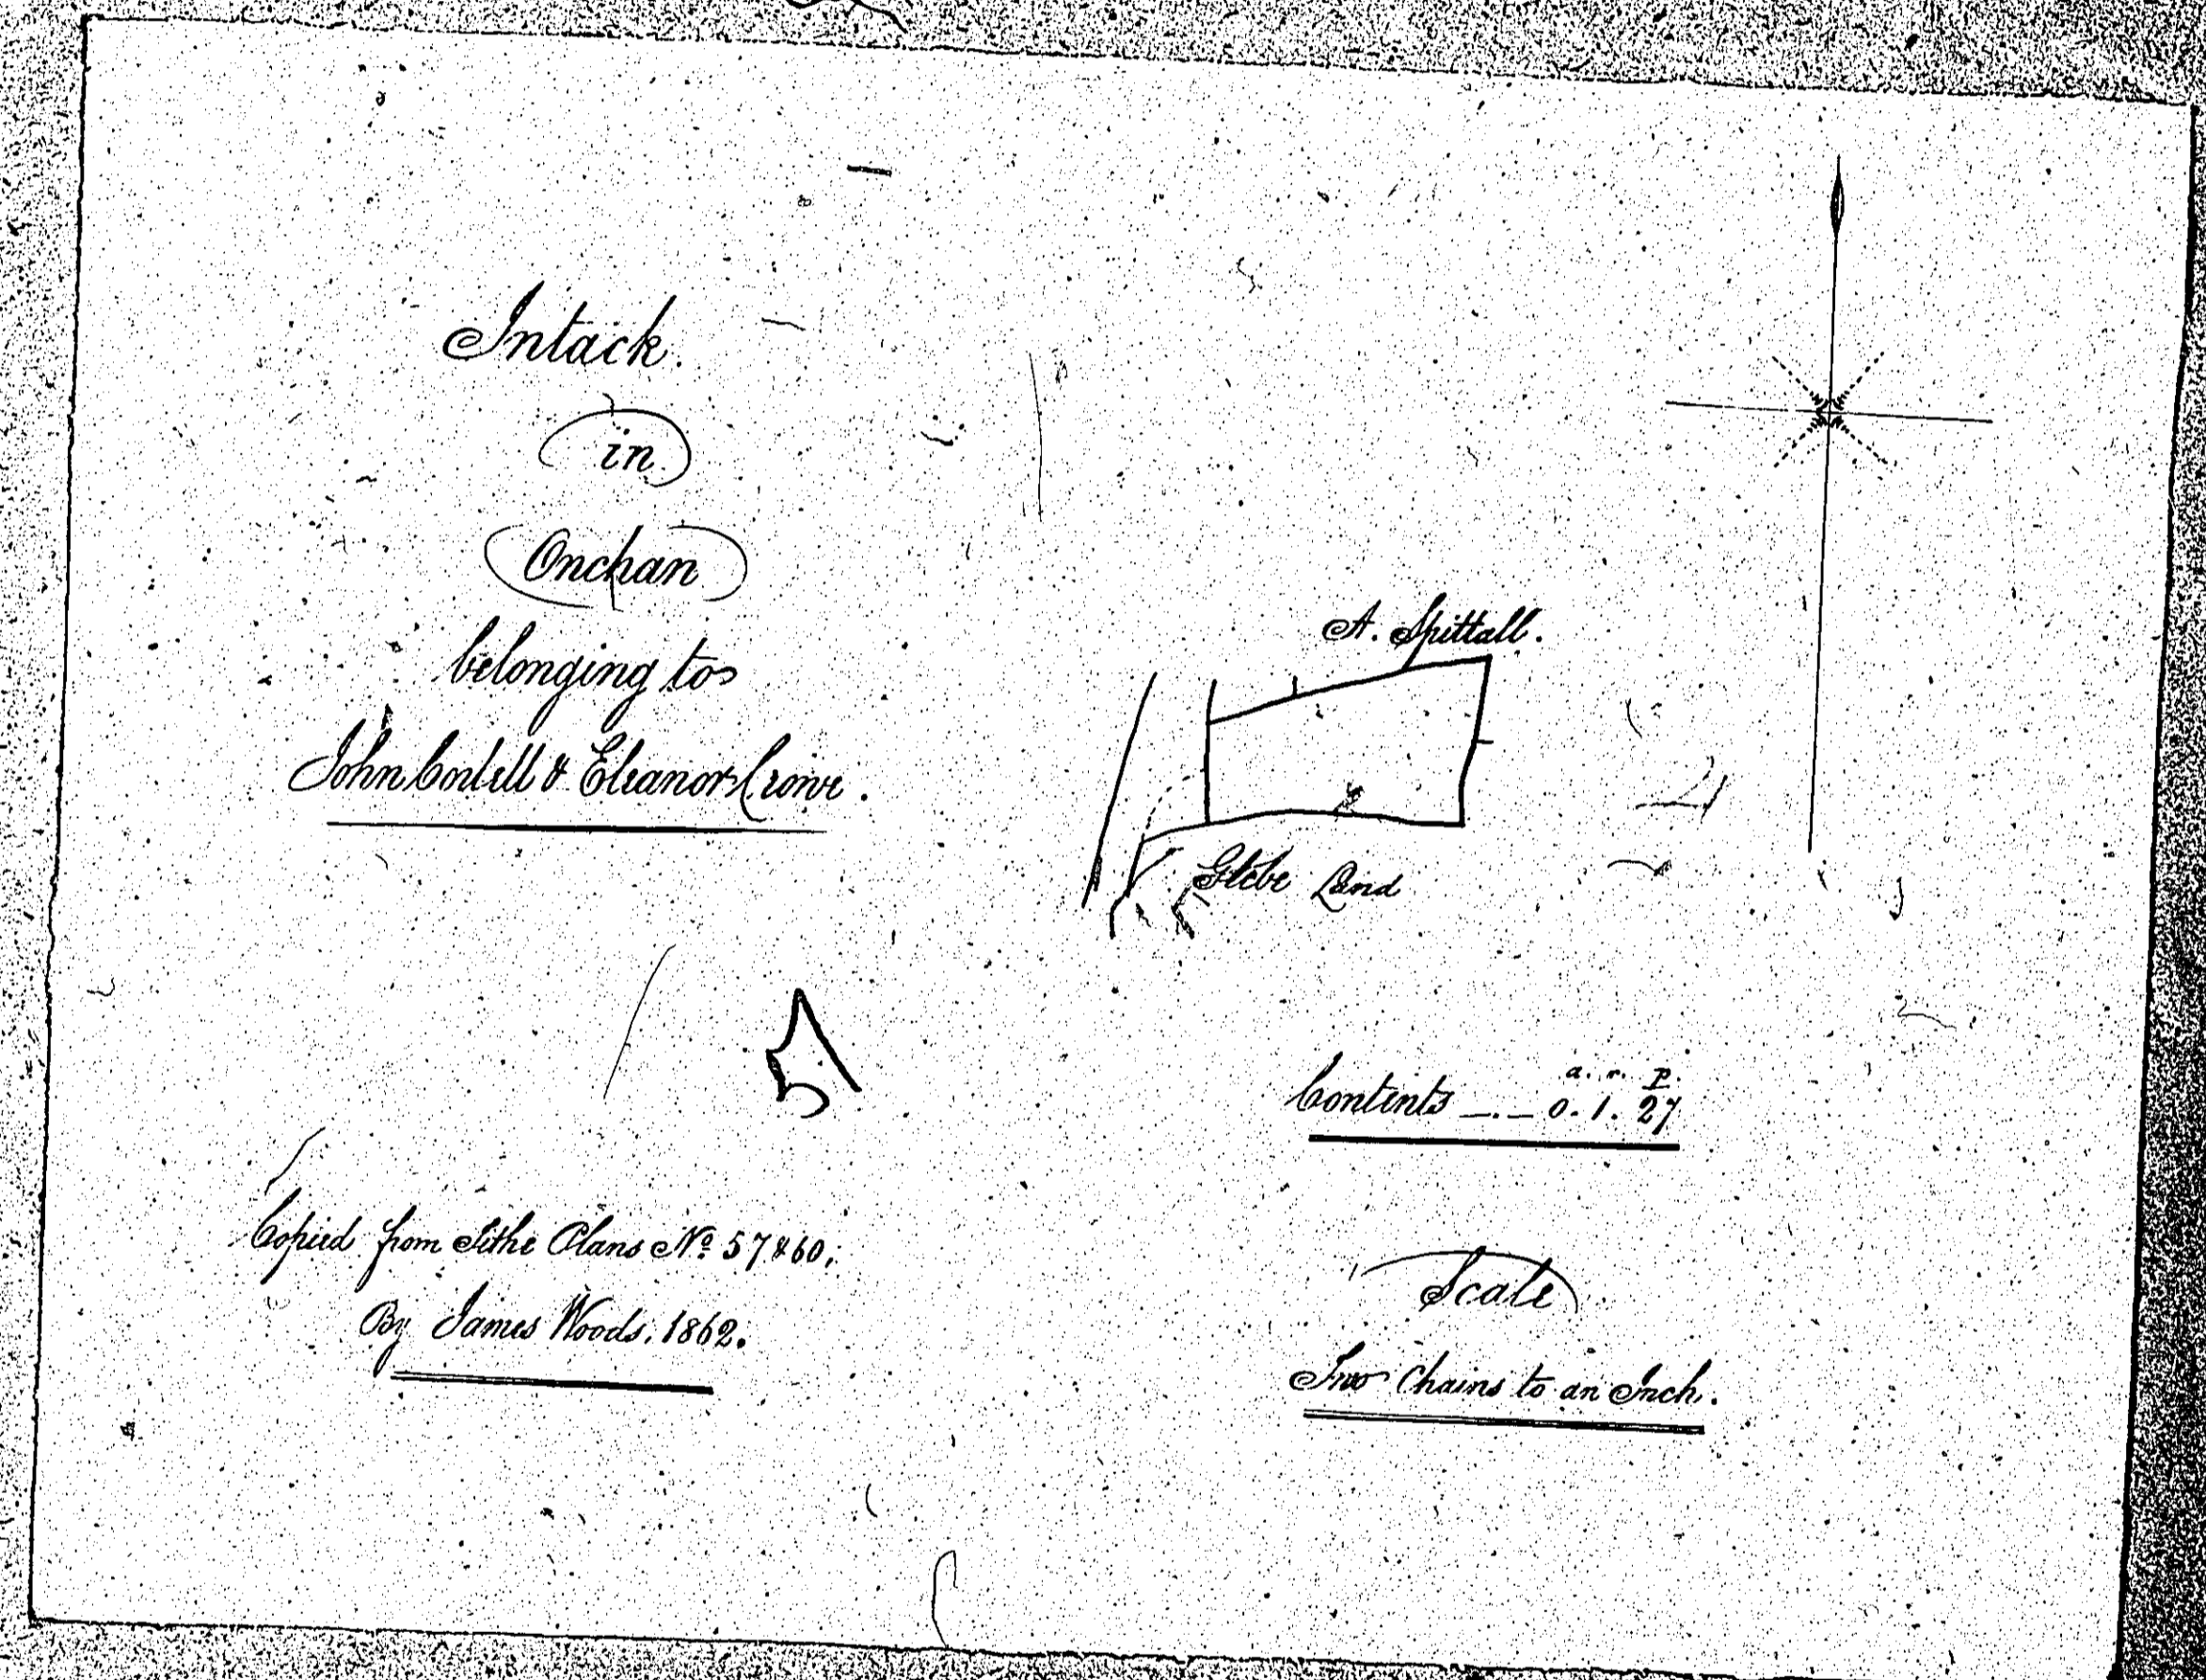 Intack.
in
Onchan
belonging to
John & Eleanor Crowe.
A. Spittall.
Glebe Land
a. r. p.
Contents _._ 0. 1. 27
Copied from Tithe Plans Nº 57 & 60,
By James Woods. 1862.
Scale
Two Chains to an Inch.